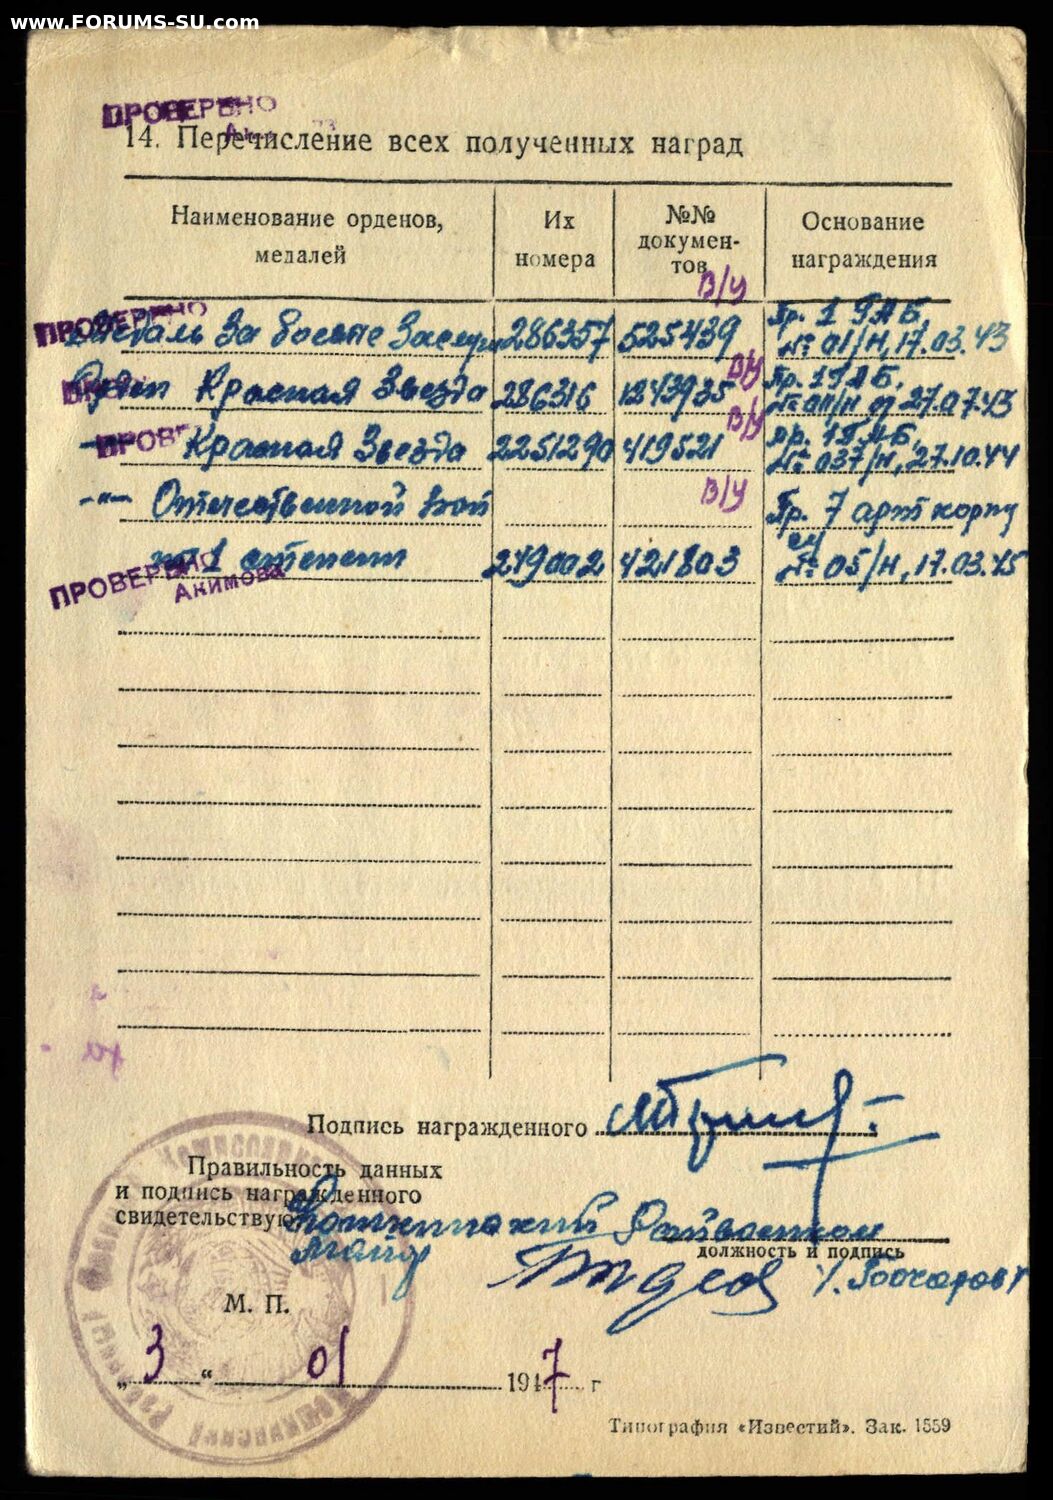 www.FORUMS-SU.com
ПРОВЕРЕНО
14. Перечисление всех полученных наград
Наименование орденов, медалей
Их номера
№№ докумен-тов
Основание награждения
в/у
ПРОВЕРЕНО
Медаль За боевые Заслуги 286357 525439 Пр. 1 ГАБ, № 01/н, 17.03.43
в/у
Орден Красная Звезда 286316 1243935 Пр. 1 ГАБ, № 011/н от 27.07.43
в/у
ПРОВЕ
Красная Звезда 2251290 419521 Пр. 1 ГАБ, № 037/н, 27.10.44
в/у
—"— Отечественной вой Пр. 7 арт корпу
1 степени 249002 421803 № 05/н, 17.03.45
ПРОВЕРЕНО
Акимова
Подпись награжденного
Правильность данных
и подпись награжденного
свидетельствую
Райвоенком
должность и подпись
Майор
М. П.
„3“ 01 1947 г
Типография «Известий». Зак. 1559